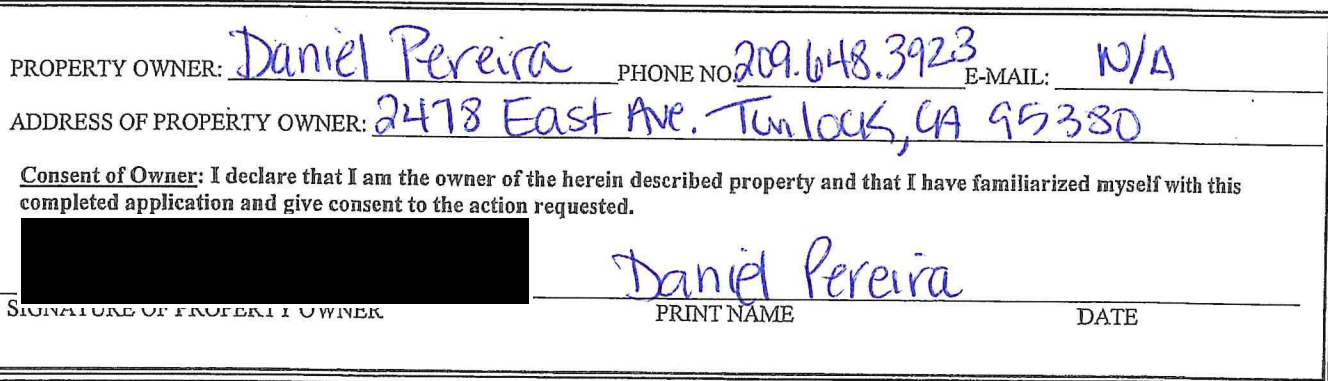 PROPERTY OWNER: Daniel Pereira PHONE NO. 209.648.3923 E-MAIL: N/A
ADDRESS OF PROPERTY OWNER: 2478 East Ave. Turlock, CA 95380
Consent of Owner: I declare that I am the owner of the herein described property and that I have familiarized myself with this
completed application and give consent to the action requested.
Daniel Pereira
SIGNATURE OF PROPERTY OWNER PRINT NAME DATE